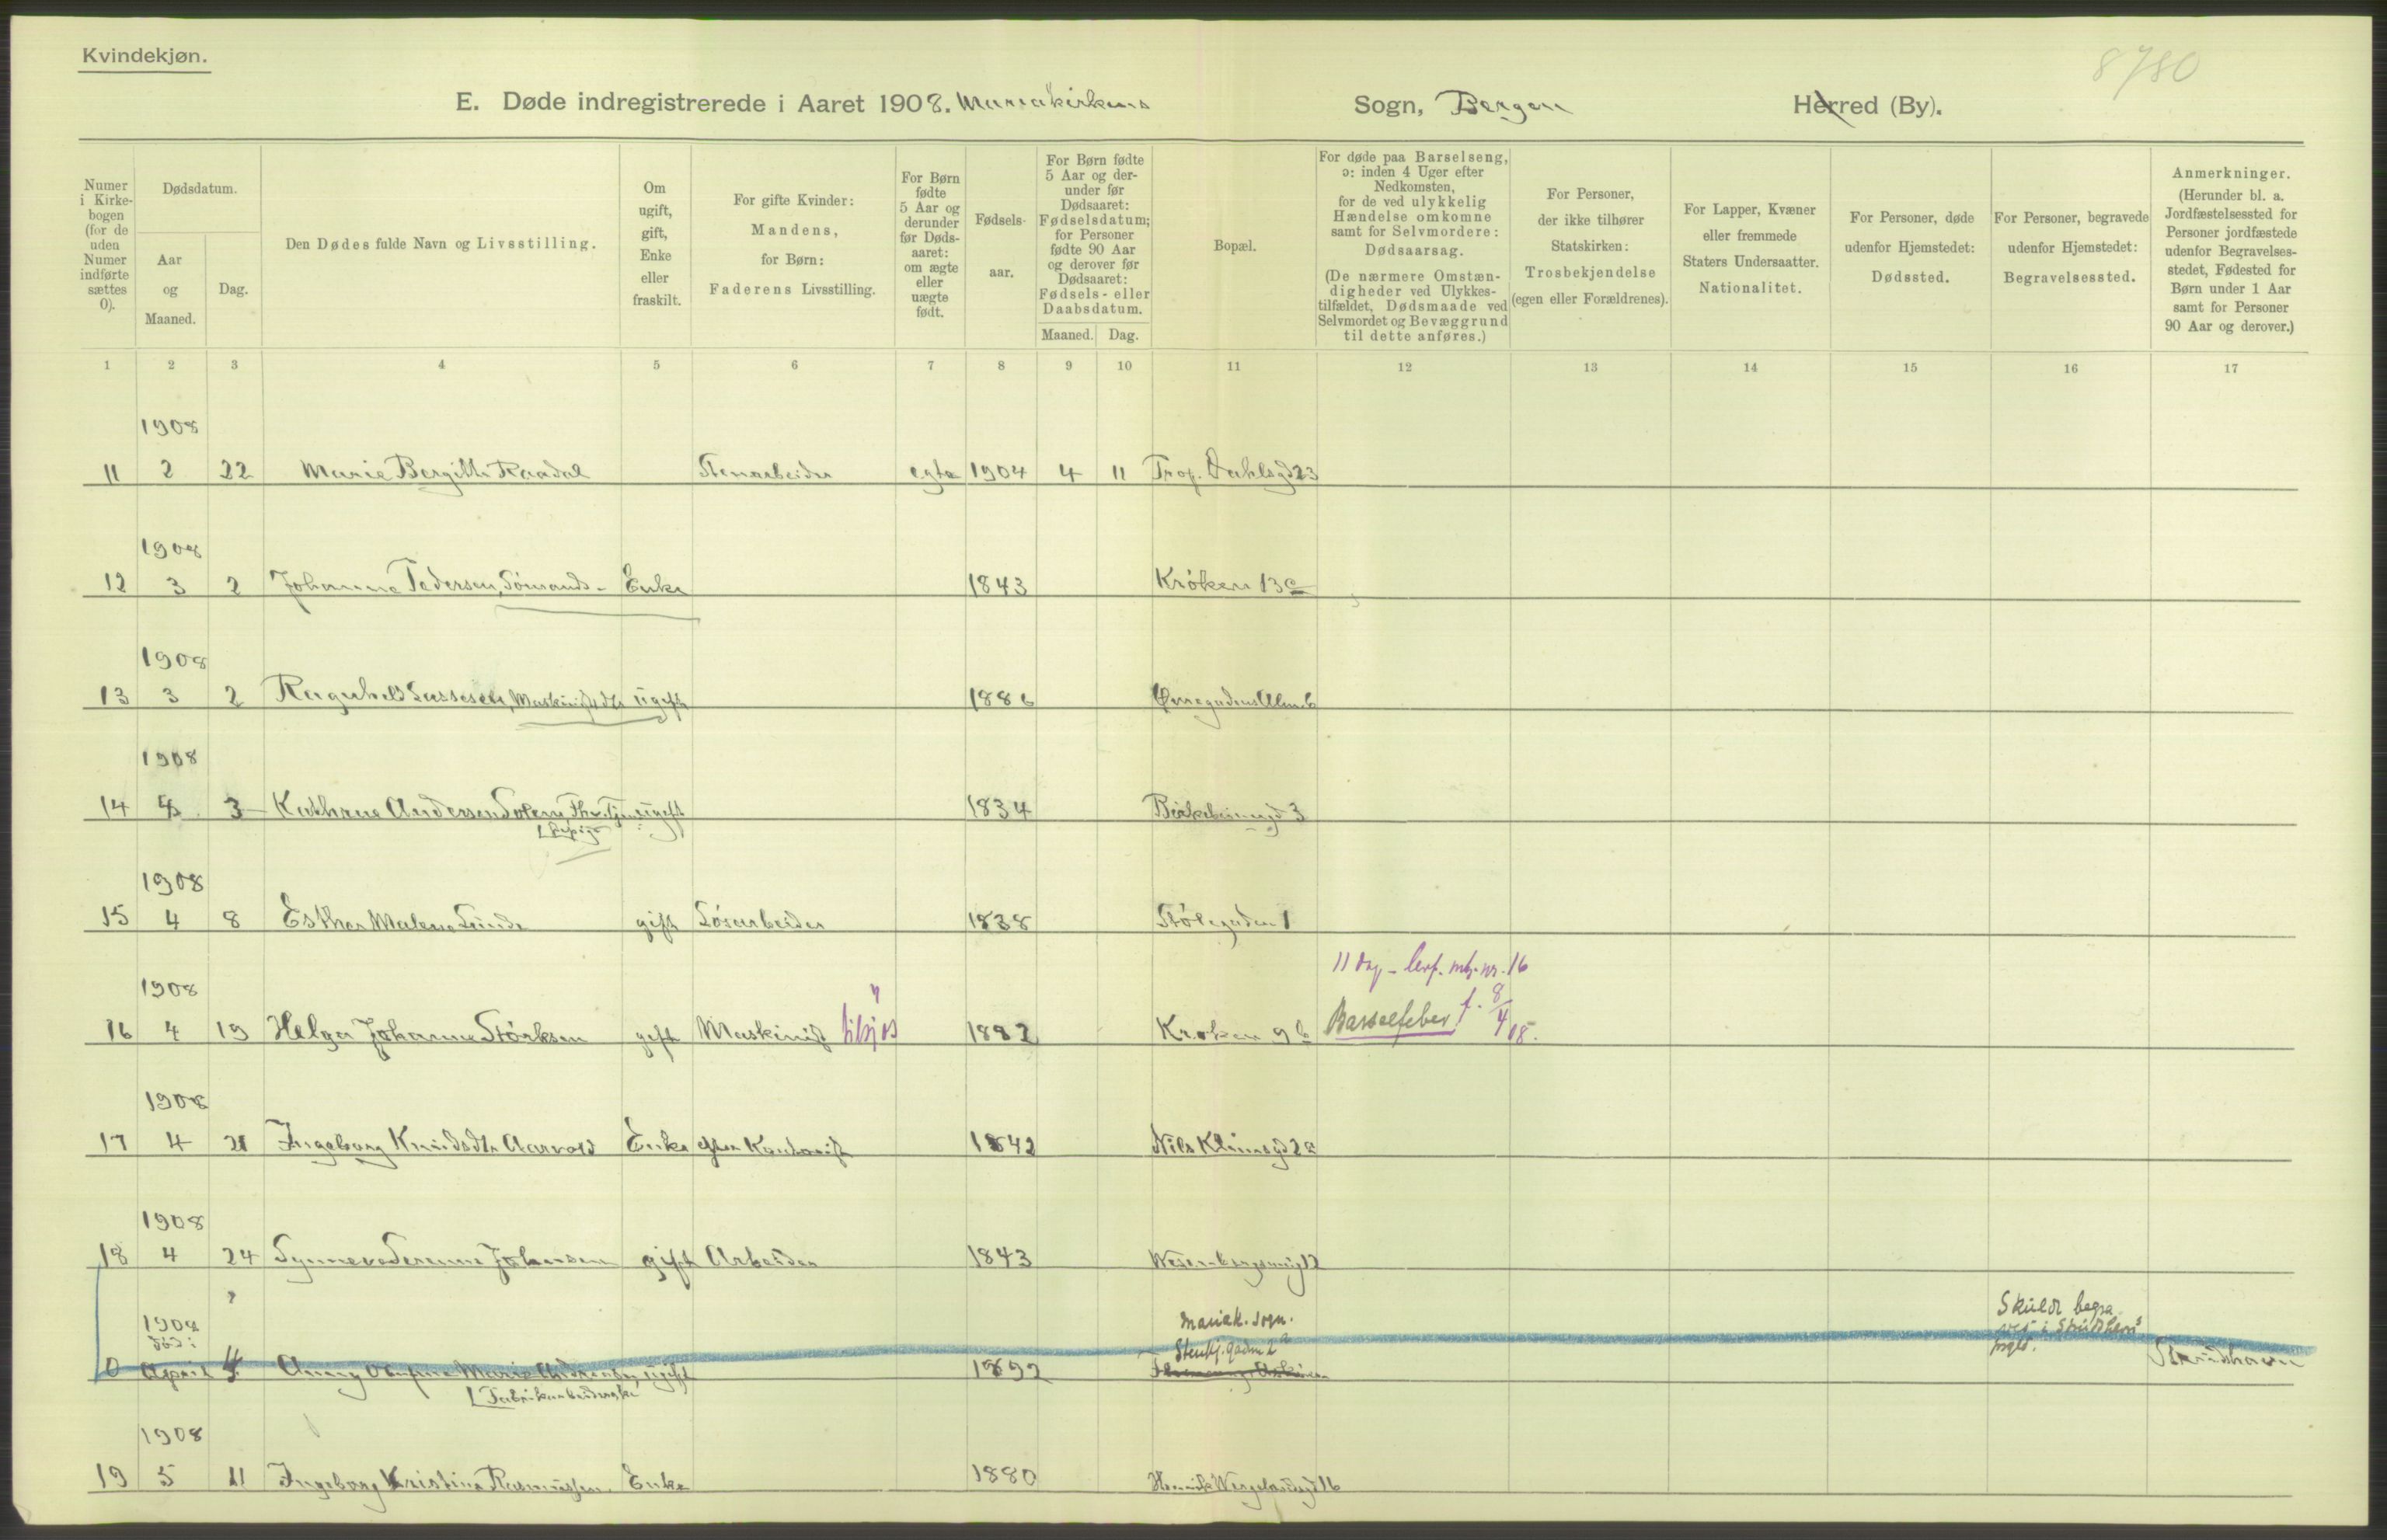 Kvindekjøn.
8780
E. Døde indregistrerede i Aaret 1908. Mariakirkens Sogn, Bergen Herred (By).
Numer i Kirkebogen (for de uden Numer indførte sættes 0).
Dødsdatum.
Aar og Maaned.
Dag.
Den Dødes fulde Navn og Livsstilling.
Om ugift, gift, Enke eller fraskilt.
For gifte Kvinder: Mandens, for Børn: Faderens Livsstilling.
For Børn fødte 5 Aar og derunder før Dødsaaret: om ægte eller uægte født.
Fødselsaar.
For Børn fødte 5 Aar og derunder før Dødsaaret: Fødselsdatum; for Personer fødte 90 Aar og derover før Dødsaaret: Fødsels- eller Daabsdatum.
Maaned. Dag.
Bopæl.
For døde paa Barselseng, ɔ: inden 4 Uger efter Nedkomsten, for de ved ulykkelig Hændelse omkomne samt for Selvmordere: Dødsaarsag.
(De nærmere Omstændigheder ved Ulykkestilfældet, Dødsmaade ved Selvmordet og Bevæggrund til dette anføres.)
For Personer, der ikke tilhører Statskirken: Trosbekjendelse (egen eller Forældrenes).
For Lapper, Kvæner eller fremmede Staters Undersaatter. Nationalitet.
For Personer, døde udenfor Hjemstedet: Dødssted.
For Personer, begravede udenfor Hjemstedet: Begravelsessted.
Anmerkninger.
(Herunder bl. a. Jordfæstelsessted for Personer jordfæstede udenfor Begravelsesstedet, Fødested for Børn under 1 Aar samt for Personer 90 Aar og derover.)
1 2 3 4 5 6 7 8 9 10 11 12 13 14 15 16 17
1908
11 2 22 Marie Bergitte Raadal Stenarbeider egte 1904 4 11 Prof. Dahlsgd 23
1908
12 3 2 Johanne Pedersen, Sømands- Enke 1843 Krøken 13 c
1908
13 3 2 Ragnhild Lassesen, Maskinistdtr ugift 1886 Øvregadens Alm. 6
1908
14 4 3 Kathrine Andersen Solem, ugift 1834 Birkebeinergd 3
1908
15 4 8 Esther Malene Lunde gift Løsarbeider 1838 Stølegaden 1
11 Dag - levf. nr. 16
1908
16 4 19 Helga Johanne Størksen gift Maskinist tilsjøs 1882 Krøken 9 b Barselfeber f. 8/4 08.
1908
17 4 21 Ingeborg Knudsdtr Aarvold Enke efter Kontorist 1842 Nils Klimsgd 2a
1908
18 4 24 Synneve Serenne Johansen gift Arbeider 1843 Wesenbergsmug 12
?
1908
død:
Mariak. sogn.
Skulde begra
ves i Skudehavns
0 April 4 Anny Marie Andreassen, ugift 1892 Skudehavn
[Fabrikarbeiderske
1908
19 5 11 Ingeborg Kristine Rasmussen Enke 1880 Henrik Wergelandsgd 16